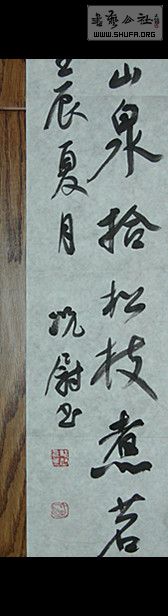 书艺公社
WWW.SHUFA.ORG
山泉拾松枝煮茗
壬辰夏月